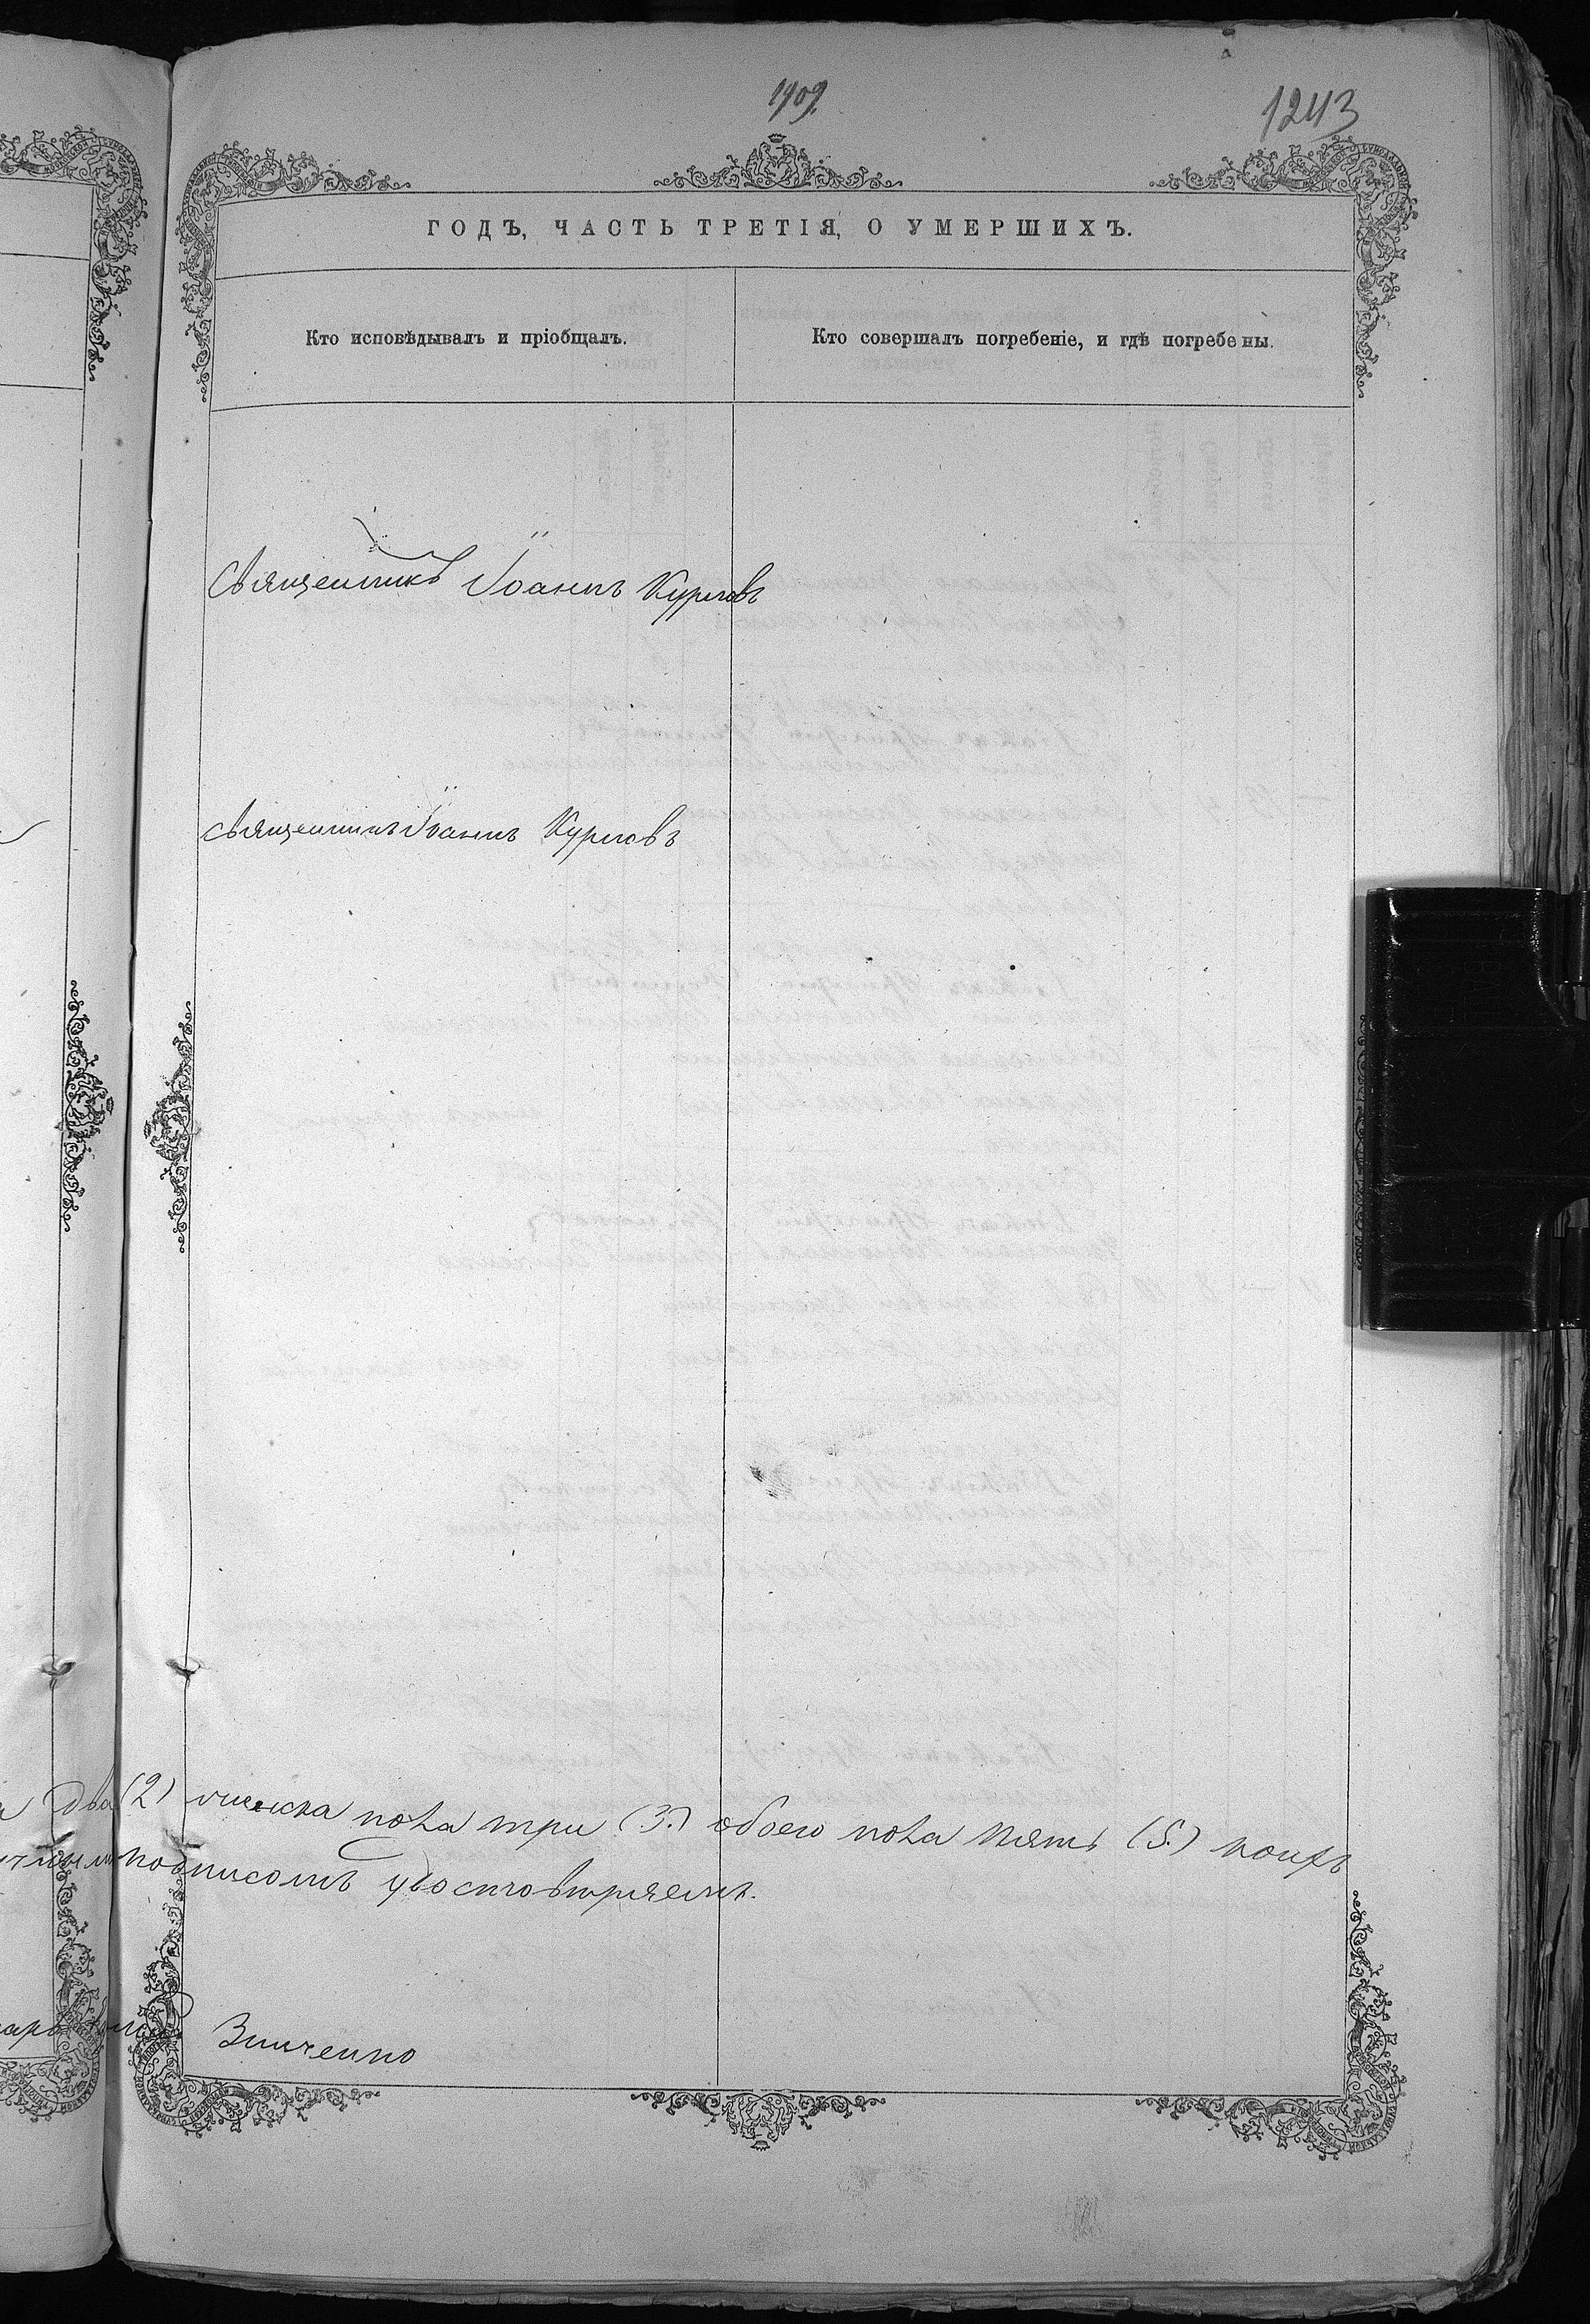 1909.
1243
ГОДЪ, ЧАСТЬ ТРЕТІЯ, О УМЕРШИХЪ.
Кто исповѣдывалъ и пріобщалъ.
Кто совершалъ погребеніе, и гдѣ погребены.
Священникъ Іоаннъ Курловъ
Священникъ Іоаннъ Курловъ
два (2) женска пола три (3.) обоего пола пять (5.) коихъ
подписомъ удостовѣряемъ.
Зинченко